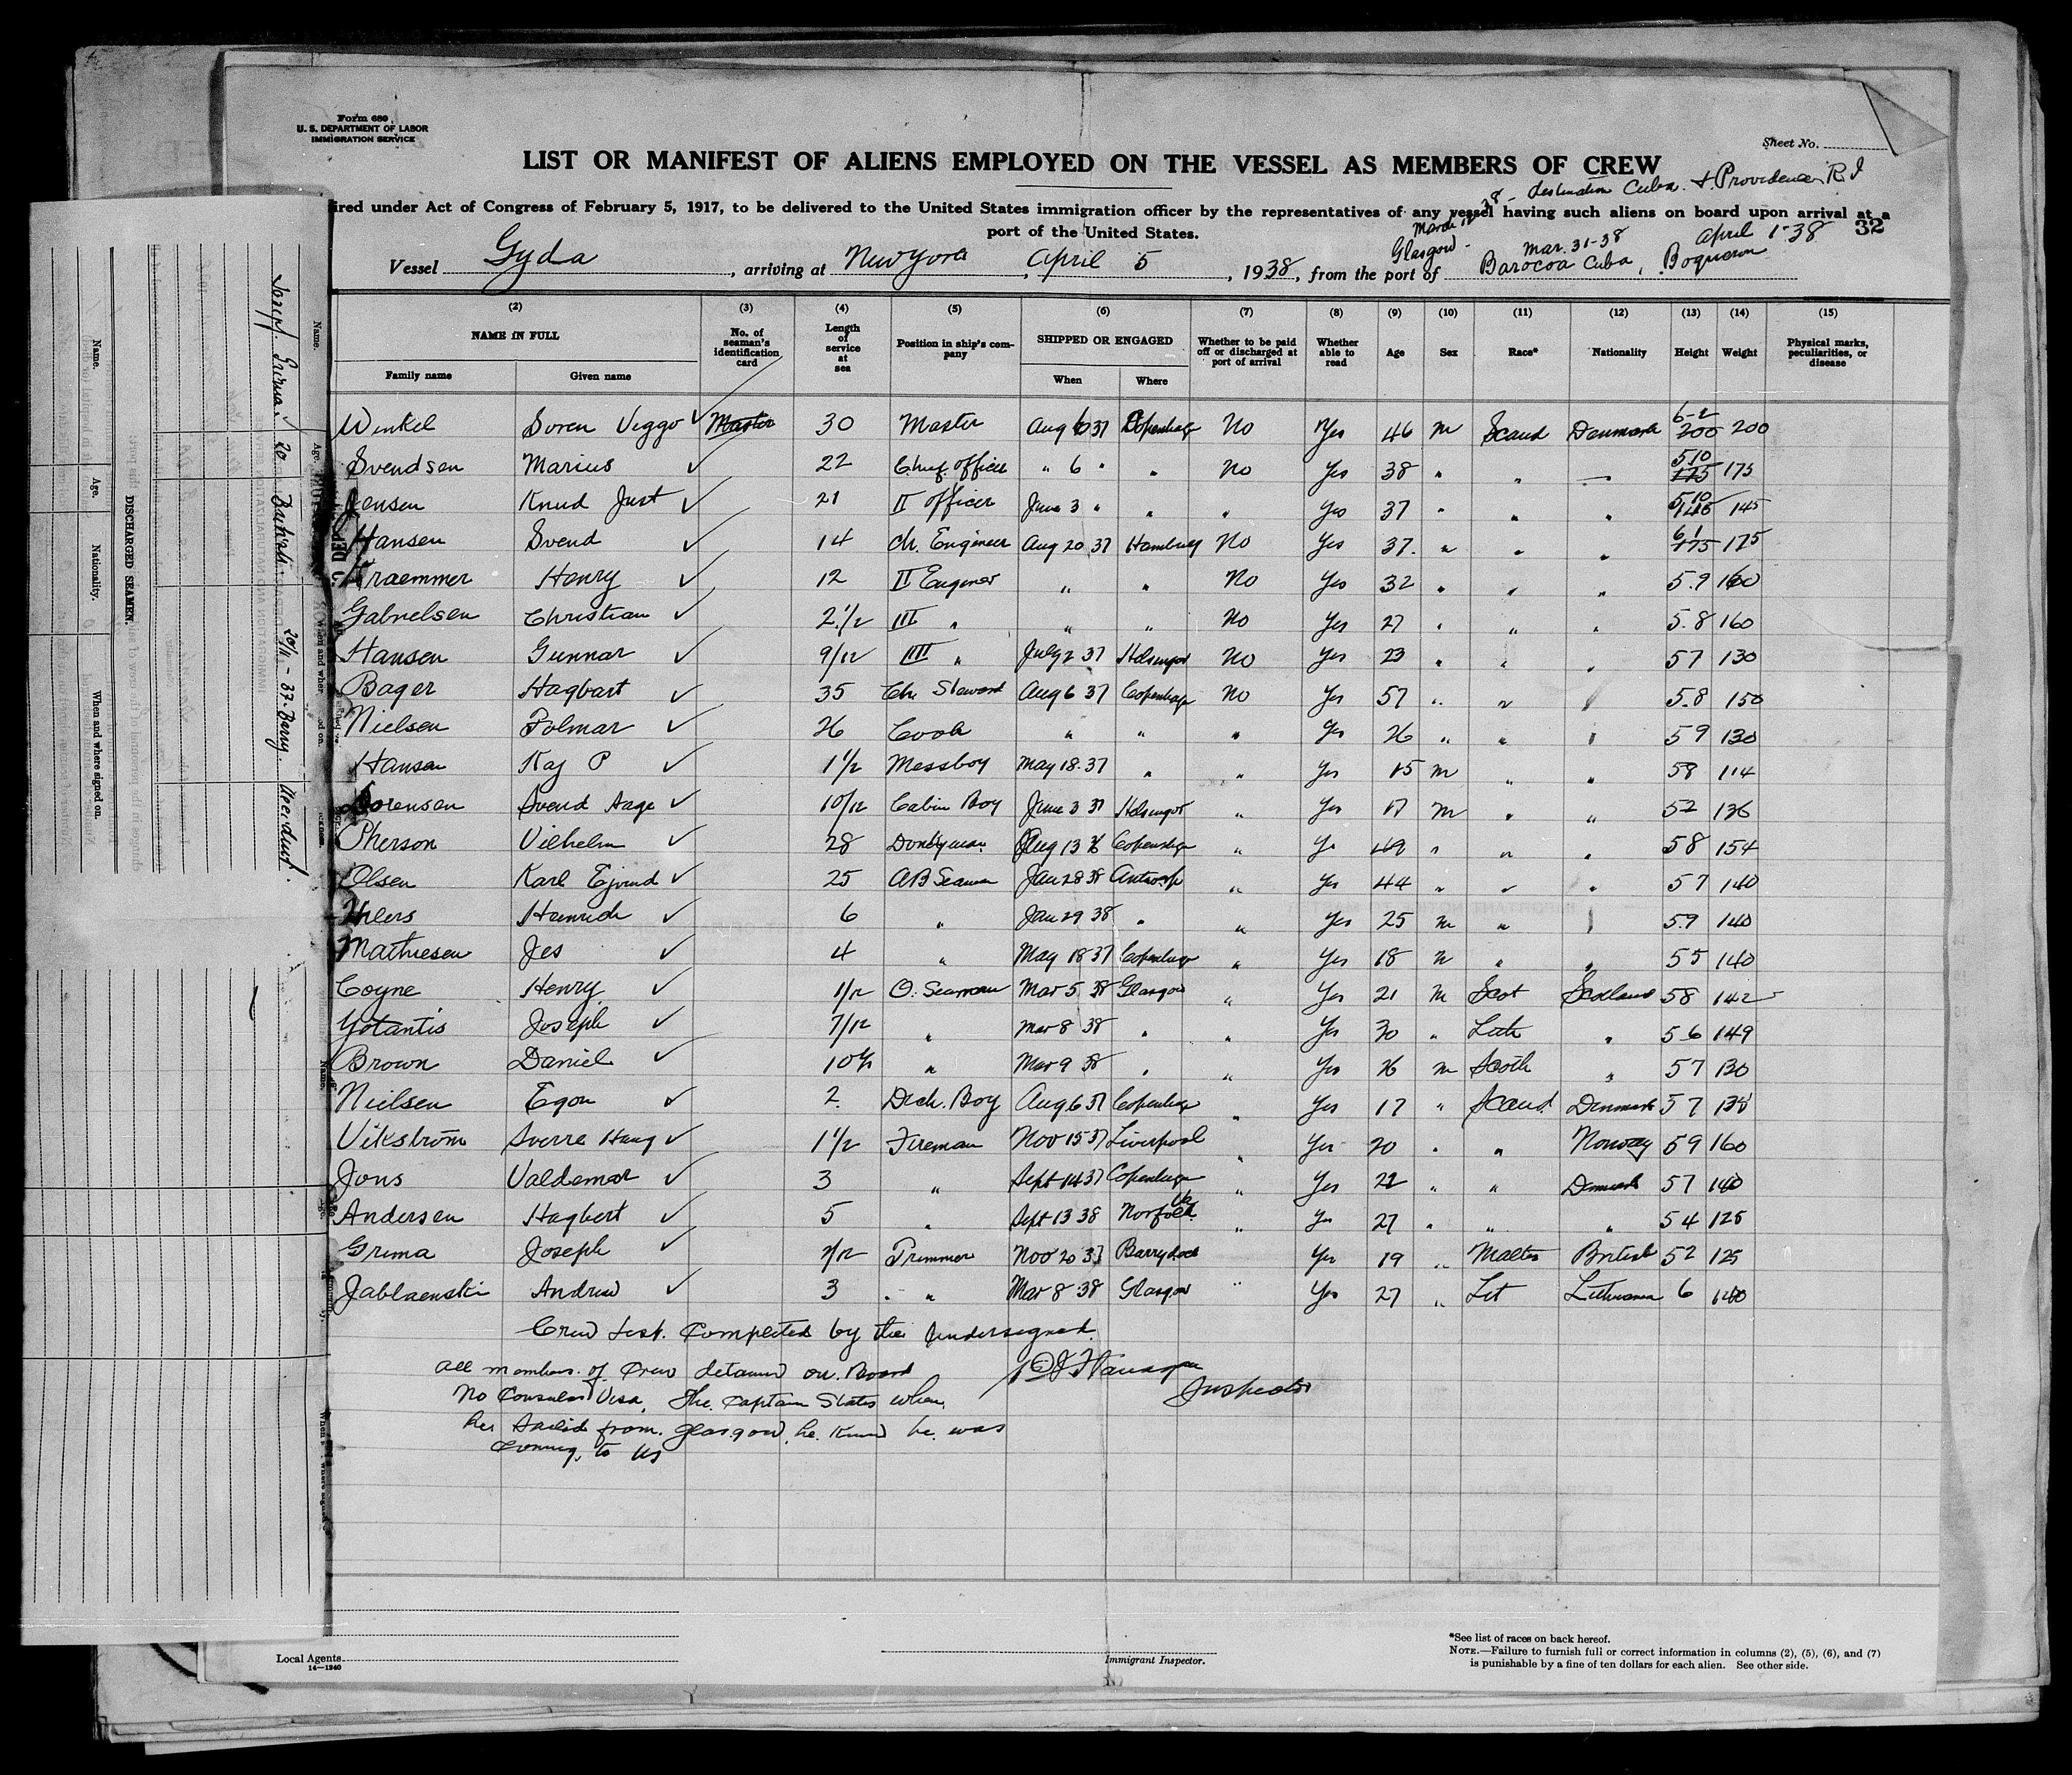 Form 680
U. S. DEPARTMENT OF LABOR
IMMIGRATION SERVICE
Sheet No.
LIST OR MANIFEST OF ALIENS EMPLOYED ON THE VESSEL AS MEMBERS OF CREW
destination Cuba. & Providence R I
ired under Act of Congress of February 5, 1917, to be delivered to the United States immigration officer by the representatives of any vessel having such aliens on board upon arrival at a
port of the United States.
32
Glasgow - Mar. 31-38 April 1-38
Vessel Gyda, arriving at New York, April 5, 1938, from the port of Barocoa Cuba, Boqueron
(2) (3) (4) (5) (6) (7) (8) (9) (10) (11) (12) (13) (14) (15)
NAME IN FULL No. of seaman's identification card Length of service at sea Position in ship's company SHIPPED OR ENGAGED Whether to be paid off or discharged at port of arrival Whether able to read Age Sex Race* Nationality Height Weight Physical marks, peculiarities, or disease
Family name Given name When Where
Winkel Soren Viggo ✓ Master 30 Master Aug 6 37 Copenhagn No Yes 46 m Scand Denmark 6-2 200 200
Svendsen Marius ✓ 22 Chief officer " 6 " " No Yes 38 " " 5.10 175 175
Jensen Knud Just ✓ 21 II officer June 3 " " " Yes 37 " " " 5.10 145 145
Hansen Svend ✓ 14 Ch. Engineer Aug 20 37 Hamburg No Yes 37. " " " 6 1 175 175
Kraemmer Henry ✓ 12 II Engineer " " No Yes 32 " " " 5.9 160
Gabrielsen Christian ✓ 2 1/2 III " " " No Yes 27 " " " 5.8 160
Hansen Gunnar ✓ 9/12 IIII " July 2 37 Helsingor No Yes 23 " " " 57 130
Bager Hagbart ✓ 35 Ch. Steward Aug 6 37 Copenhagn No Yes 57 " " " 5.8 150
Nielsen Folmar ✓ 26 Cook " " " Yes 26 " " " 59 130
Hansen Kaj P ✓ 1 1/2 Messboy May 18.37 " " Yes 15 m " " 58 114
Sorensen Svend Aage ✓ 10/12 Cabin Boy June 3 37 Helsingor " Yes 17 m " " 52 136
Pherson Vilhelm ✓ 28 Donkeyman Aug 13 Copenhagn " Yes 49 " " " 58 154
Olsen Karl Ejvind ✓ 25 AB Seaman Jan 28 38 Antwerp " Yes 44 " " " 57 140
Heinrich ✓ 6 " Jan 29 38 " " Yes 25 m " 5.9 140
Mathiesen Jes ✓ 4 " May 18 37 Copenhagn " Yes 18 m " " 55 140
Coyne Henry ✓ 1/12 O. Seaman Mar 5 38 Glasgow " Yes 21 m Scot Scotland 58 142
Yotantis Joseph ✓ 7/12 " Mar 8 38 " " Yes 30 " Lith " 56 149
Brown Daniel ✓ " Mar 9 38 " " Yes 26 m Scoth " 57 130
Nielsen Egon ✓ 2 Deck. Boy Aug 6 37 Copenhagn " Yes 17 " Scand. Denmark 57 138
Vikstrom Sverre Haug ✓ 1 1/2 Fireman Nov 15 37 Liverpool " Yes 20 " " Norway 59 160
Jons Valdemar ✓ 3 " Sept 14 37 Copenhagn " Yes 22 " " Denmark 57 140
Andersen Hagbert ✓ 5 " Sept 13 38 Norfolk Va. " Yes 27 " " " 54 125
Grima Joseph ✓ Trimmer Nov 20 37 Barry Dock Yes 19 " Maltes British 52 125
Jablaenski Andrew ✓ 3 " Mar 8 38 Glasgow " Yes 27 " Lit Lithuania 6
Crew List. Completed by the undersigned.
All members of Crew detained on Board
Inspector
No Consular Visa, The Captain States when
he sailed from Glasgow, he knew he was
coming to US
Local Agents
14—1240
Immigrant Inspector.
*See list of races on back hereof.
NOTE.—Failure to furnish full or correct information in columns (2), (5), (6), and (7)
is punishable by a fine of ten dollars for each alien. See other side.
DISCHARGED SEAMEN.
Name. Age. Nationality. When and where signed on.
Josepf. Grima. ✓ 20 British. 20/11 - 37. Barry.
Name. Age.